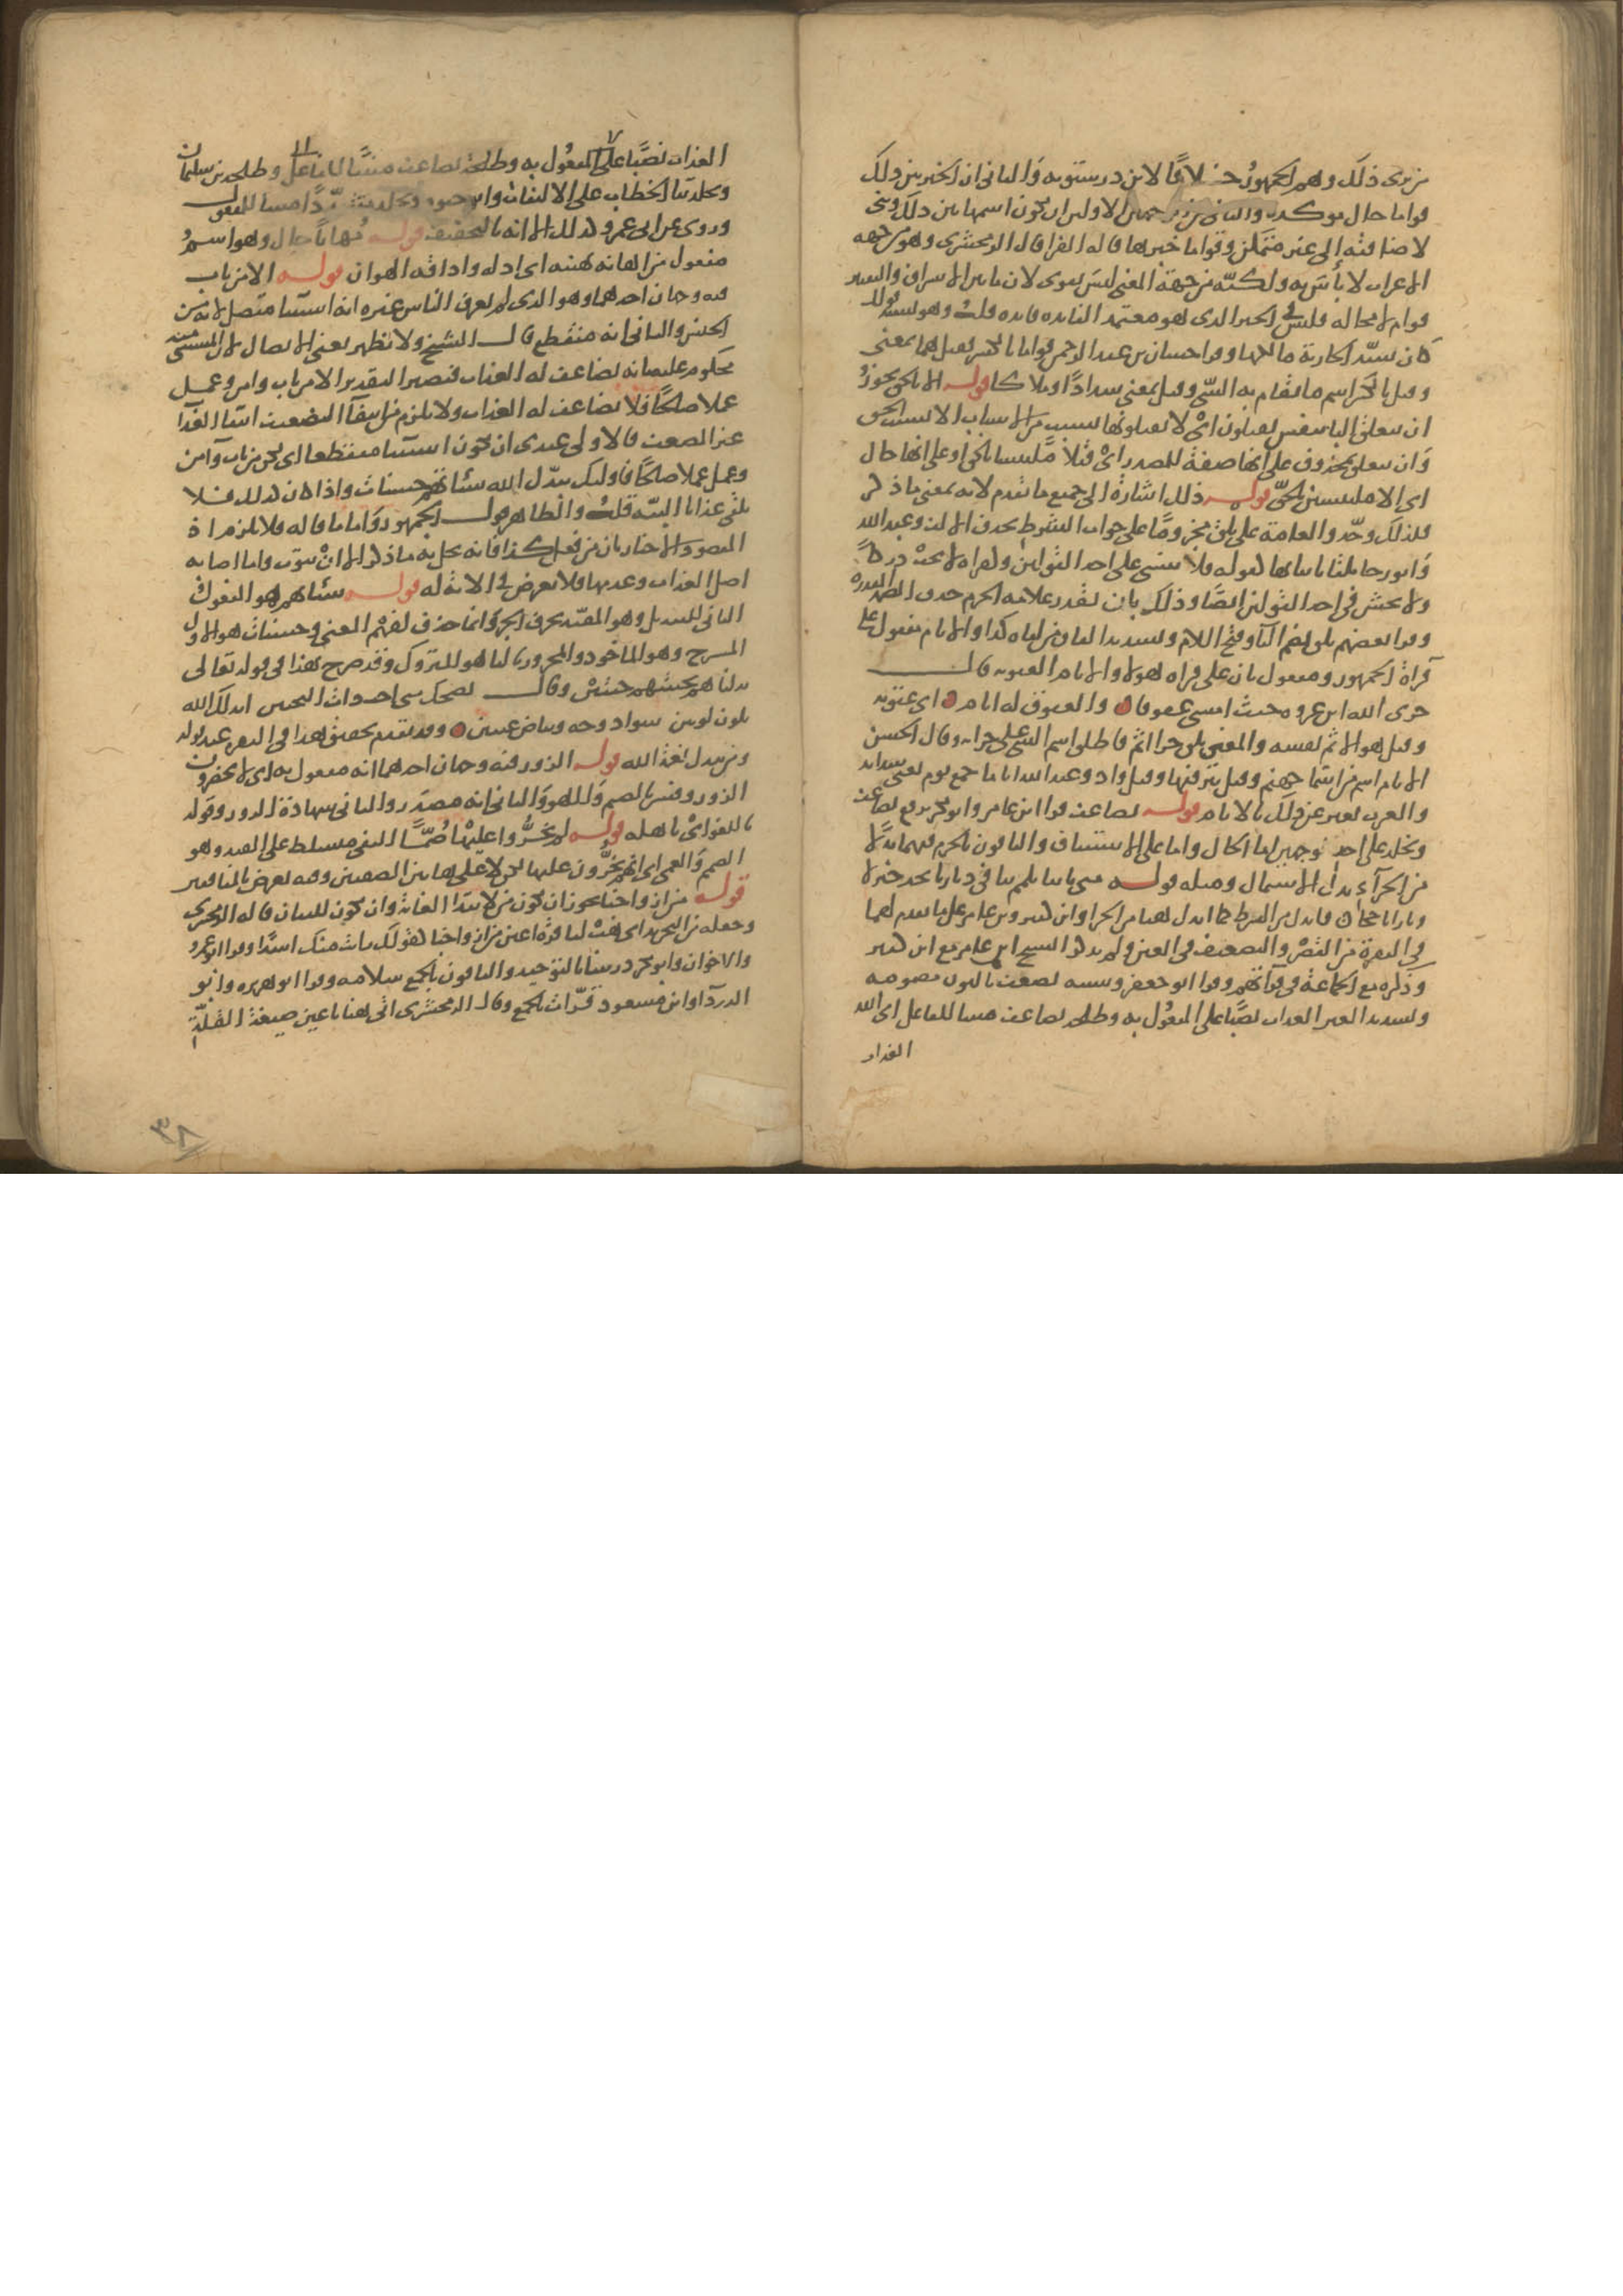 من يرى ذلك وهم الجمهور خلافًا لابن درستويه والثاني ان الخبر بين ذلك
قواما حال موكدة والثالث من توجيهي الاولين ان يكون اسمها بين ذلك وبني
لاضافته إلى غير متمكن وقواما خبرها قاله الفرا قال الزمخشري وهو من جهة
الاعراب لا بأس به ولكنه من جهة المعنى ليس بقوى لان ما بين الاسراف والتقتير
قوام لا محالة فليس في الخبر الذي هو معتمد الفائدة فائدة قلت وهو يشبه قولك
كان سيد الجارية مالكها وقرا حسان بن عبد الرحمن قواما بالكسر فقيل هما بمعنى
وقيل بالكسر اسم ما يقام به الشي وقيل بمعنى سدادًا وملاكا قوله الا بالحق يجوز
ان يتعلق الباء بنفس يقتلون اى لا يقتلونها بسبب من الاسباب الا بسبب الحق
وان يتعلق بمحذوف على انها صفة للمصدر اى قتلا ملتبسا بالحق او على انها حال
اى الا ملتبسين بالحق قوله ذلك اشارة الى جميع ما تقدم لانه بمعنى ما ذكر
فلذلك وحّد والعامة على يلق مجزومًا على جواب الشرط بحذف الالف وعبد الله
وابو رجا يلقا باثباتها كقوله فلا تنسى على احد القولين وكقراه لا تخف دركًا
ولا تخشى في احد القولين ايضًا وذلك بان نقدر علامة الجزم حذف الضمة المقدرة
وقرا بعضهم يلقى بضم الياء وفتح اللام وتشديد القاف من لقاه كذا والاثام مفعول على
قراة الجمهور ومفعول ثان على قراه هولا والاثام العقوبه قال
جزى الله ابن عروة حيث امسى عقوقا والعقوق له اثام اى عقوبة
وقيل هو الاثم نفسه والمعنى يلق جزا اثم فاطلق اسم الشي على جزائه وقال الحسن
الاثام اسم من اسماء جهنم وقيل بئر فيها وقيل واد وعبد الله اياما جمع يوم يعني شدائد
والعرب تعبر عن ذلك بالايام قوله يضاعف قرا ابن عامر وابو بكر برفع يضاعف
ويخلد على احد وجهين اما الحال واما على الاستئناف والباقون بالجزم فيهما بدلا
من الجزاء بدل الاشتمال ومثله قوله متى تاتنا تلمم بنا في ديارنا تجد خبرا
ونارا تاججا فابدل من الشرط كما ابدل هنا من الجزا وابن كثير وابن عامر على ما تقدم لهما
في البقرة من القصر والتضعيف في العين ولم يذكر الشيخ ابن عامر مع ابن كثير
وذكره مع الجماعة في قراتهم وقرا ابو جعفر وشيبة نضعف بالنون مضمومه
وتشديد العين العذاب نصبًا على المفعول به وطلحة نضاعف مبنيا للفاعل اى الله
العذاب
العذاب نصبًا على المفعول به وطلحة نضاعف مبنيًّا للفاعل وطلحة بن سليمان
وتخلد بتا الخطاب على الالتفات وابو حيوة وتخلد مشددًا مبنيا للمفعول
وروى عن ابى عمرو كذلك الا انه بالتخفيف قوله مُهانًا حال وهو اسم
مفعول من اهانه يهينه اى اذله واذاقه الهوان قوله الا من تاب
فيه وجهان احدهما وهو الذى لم يعرف الناس غيره انه استثنا متصل لانه من
الجنس والثاني انه منقطع قال الشيخ ولا يظهر يعني الاتصال لان المستثنى منه
محكوم عليه بانه يضاعف له العذاب فيصير التقدير الا من تاب وامن وعمل
عملا صالحًا فلا يضاعف له العذاب ولا يلزم من انتفاء التضعيف انتفاء العذاب
غير المضعف فالاولى عندى ان يكون استثنا منقطعا اى لكن من تاب وآمن
وعمل عملا صالحًا فاوليك يبدّل الله سيئاتهم حسنات واذا كان كذلك فلا
يلقى عذابا البتّة قلت والظاهر قول الجمهور واما ما قاله فلا يلزم اذ
المقصود الاخبار بان من فعل كذا فانه يحل به ما ذكر الا ان يتوب واما اصابه
اصل العذاب وعدمها فلا تعرض في الآية له قوله سيئاتهم هو المفعول
الثاني للتبديل وهو المقيد بحرف الجر وانما حذف لفهم المعنى وحسنات هو الاول
المسرح وهو الماخوذ والمجرور بالباء هو المتروك وقد صرح بهذا في قوله تعالى
بدلناهم بجنتيهم جنتين وقال تضحك منى اخت ذات النحيين ابدلك الله
بلون لونين سواد وجه وبياض عينين وقد تقدم تحقيق هذا في البقرة عند قوله
ومن يبدل نعمة الله قوله الزور فيه وجهان احدهما انه مفعول به اى لا يحضرون
الزور وفسر بالصنم واللهو والثاني انه مصدر والثاني شهادة الزور وقوله
باللغو اى باهله قوله لم يخرّوا عليها صُمًّا النفى مسلط على القيد وهو
الصمم والعمى اى انهم يخرّون عليها لكن لا على هاتين الصفتين وفيه تعريض بالمنافقين
قوله من ازواجنا يجوز ان يكون من لابتدا الغاية وان تكون للبيان قاله الزمخشري
وجعله من التجريد اى هب لنا قرة اعين من ازواجنا كقولك رايت منك اسدًا وقرا ابو عمرو
والاخوان وابو بكر ذريتنا بالتوحيد والباقون بالجمع سلامة وقرا ابو هريرة وابو
الدرداء وابن مسعود قرّات بالجمع وقال الزمخشرى اتى هنا باعين صيغة القلّة
٣٨